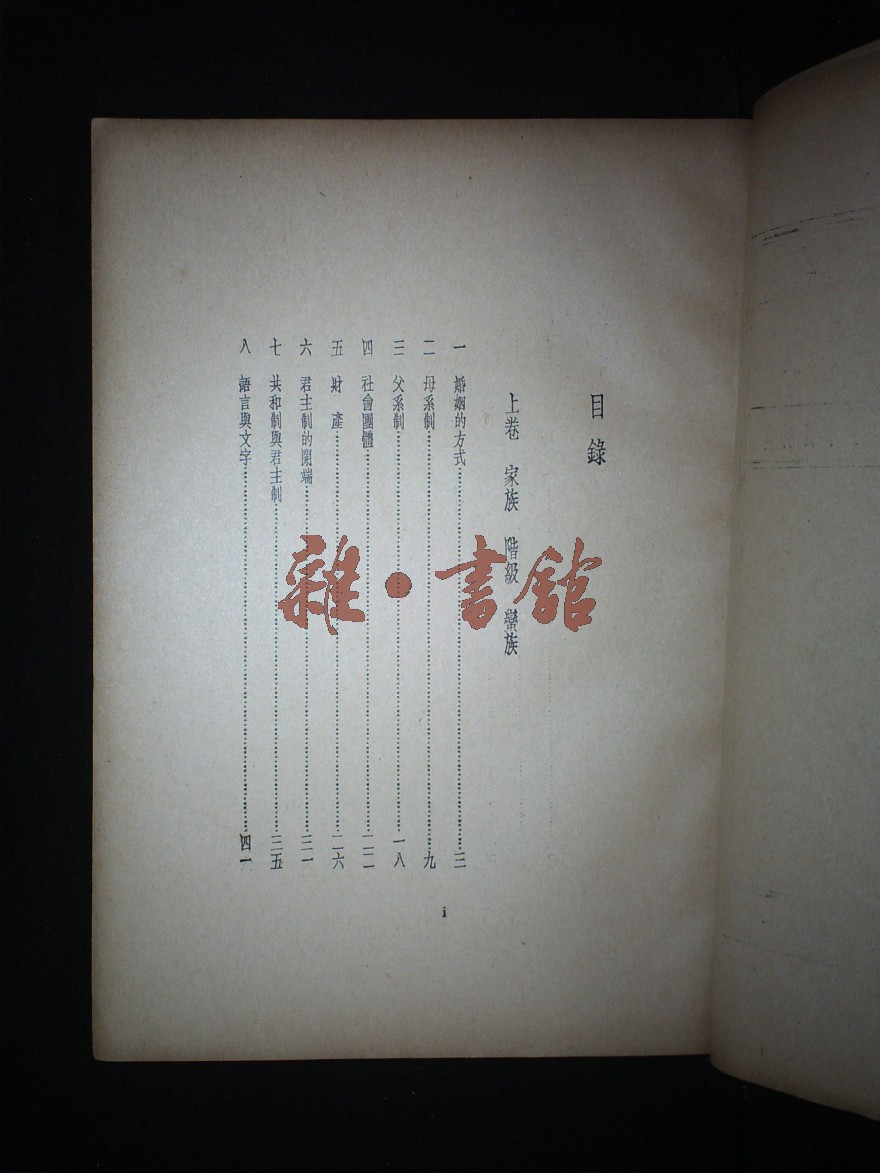 目錄
上卷 家族 階級 蠻族
一 婚姻的方式……三
二 母系制……九
三 父系制……一八
四 社會團體……二二
五 財產……二六
六 君主制的開端……三一
七 共和制與君主制……三五
八 語言與文字……四一
i
雜·書館